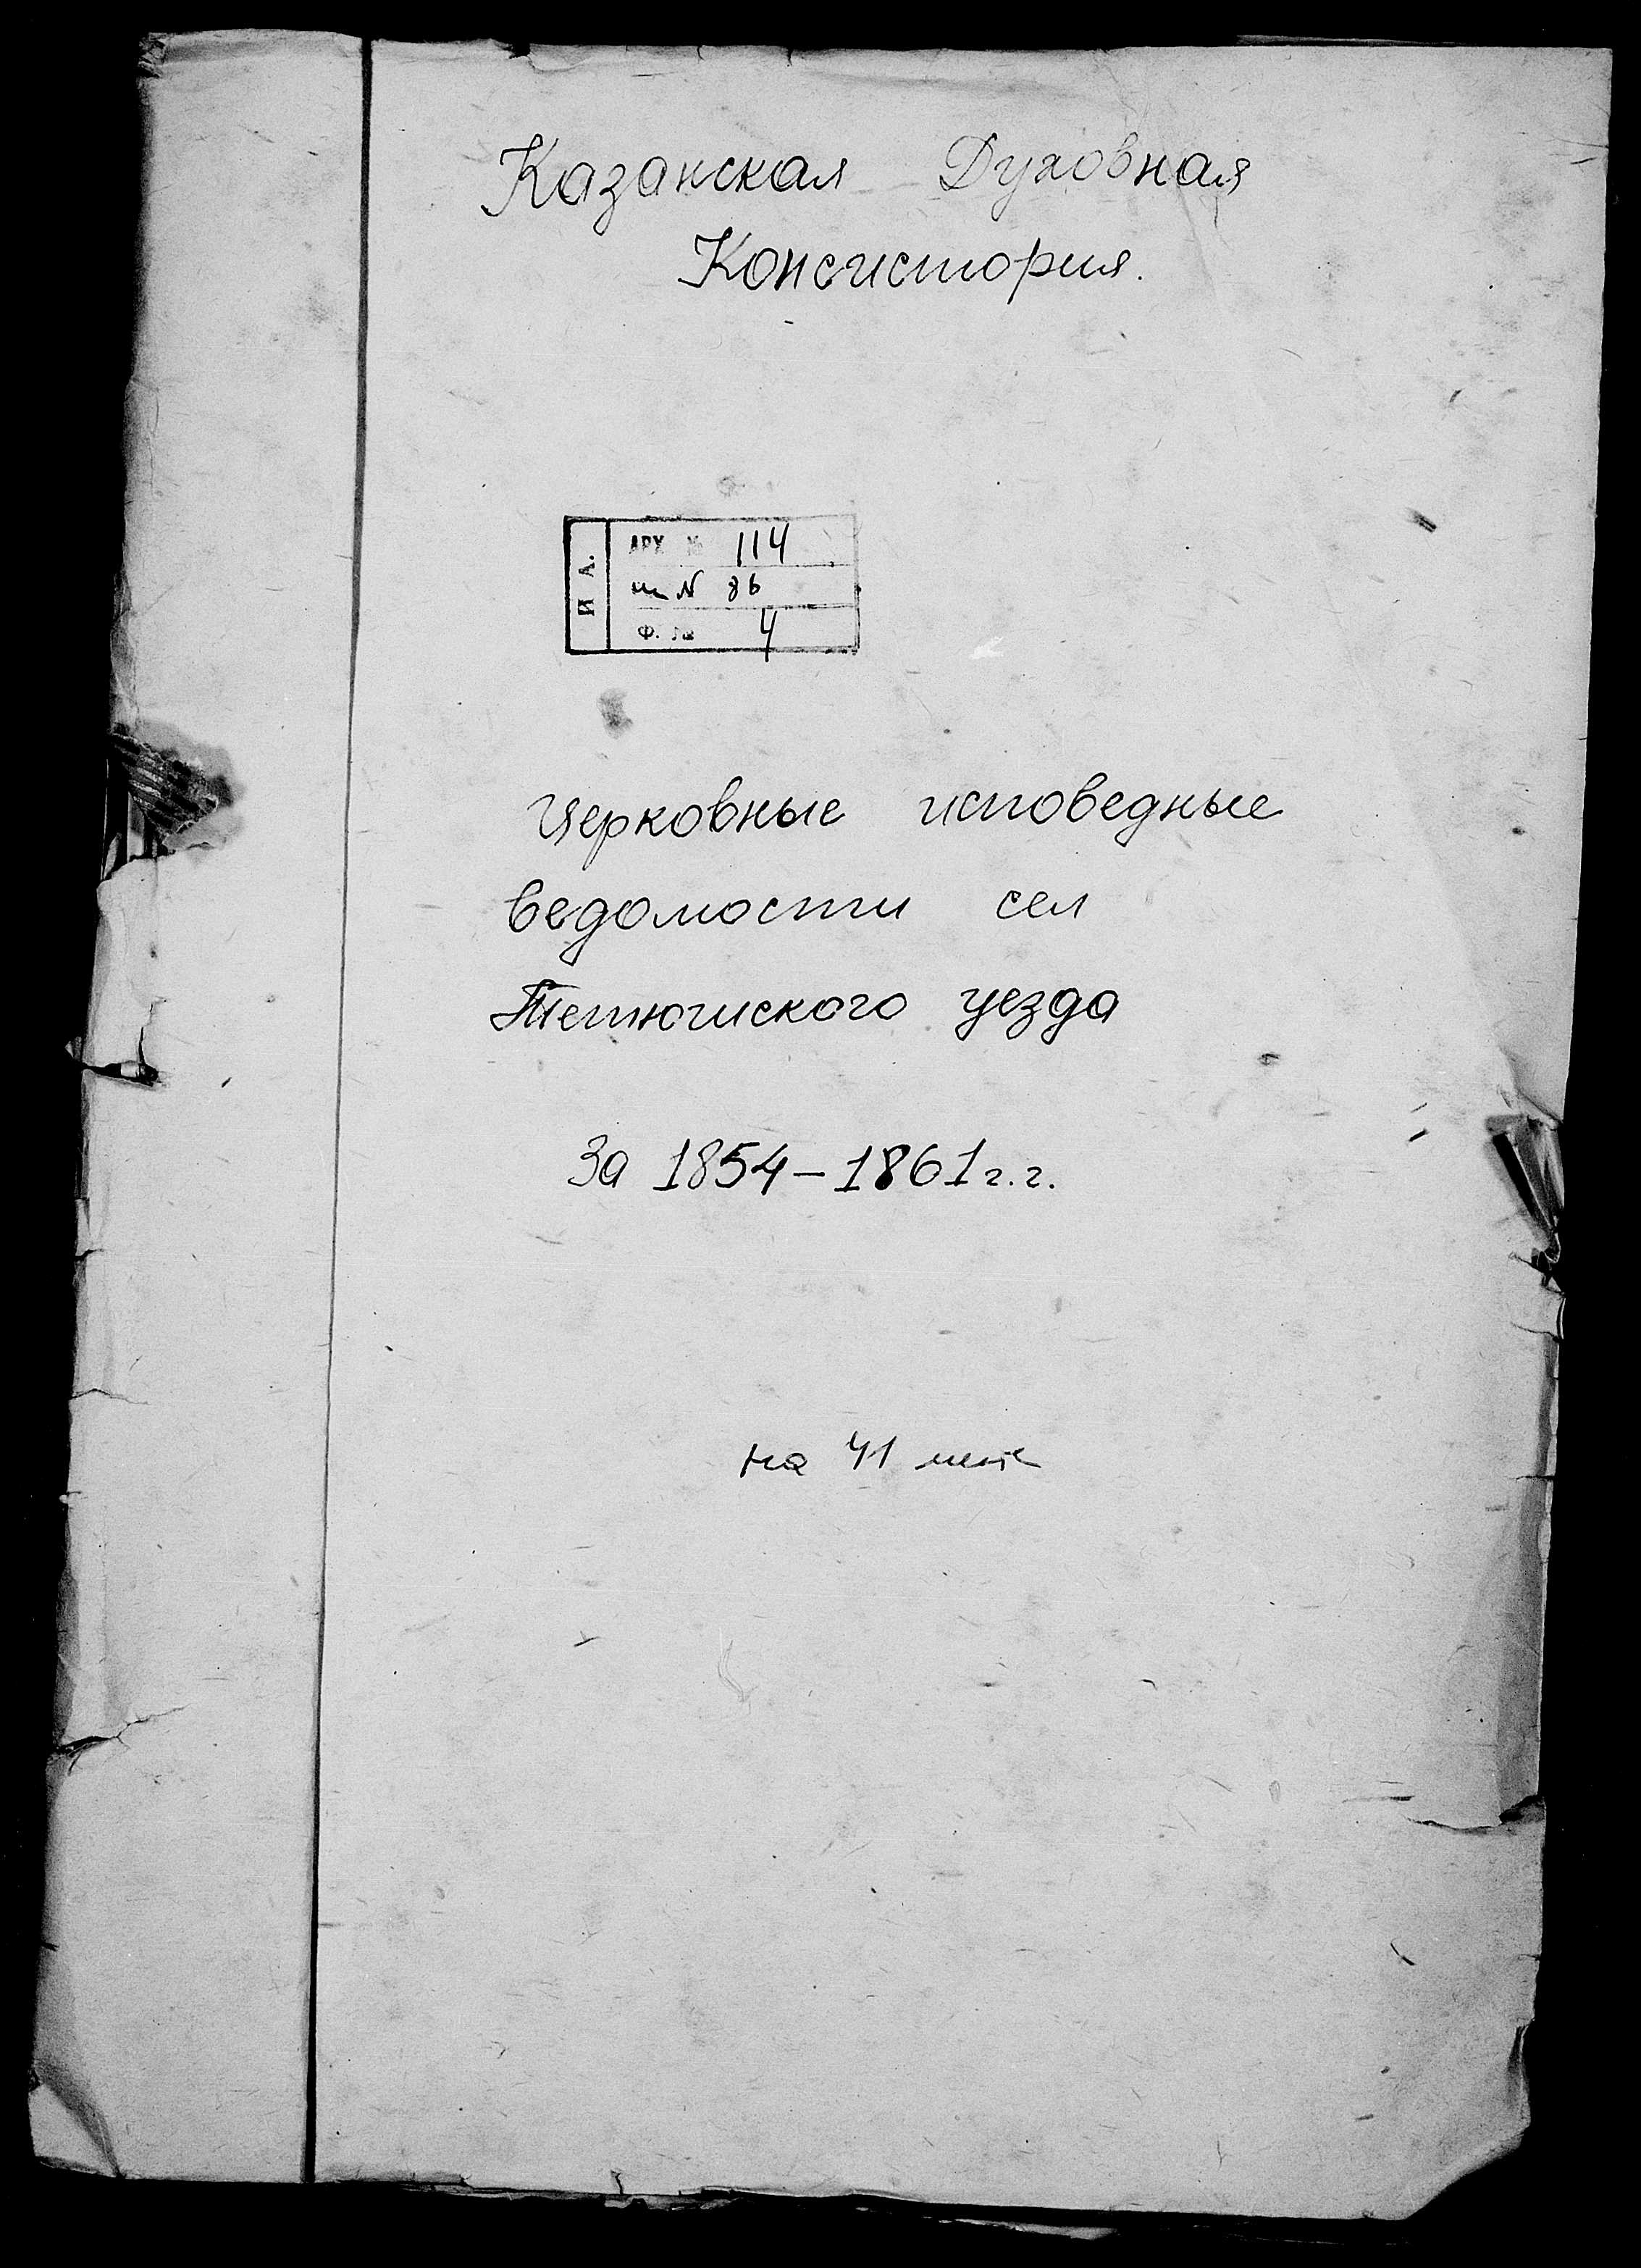 Казанская Духовная
Консистория.
И А.
АРХ № 114
оп N 86
Ф. № 4
Церковные исповедные
ведомости сел
Тетюшского уезда
За 1854-1861 г.г.
на 41 листе